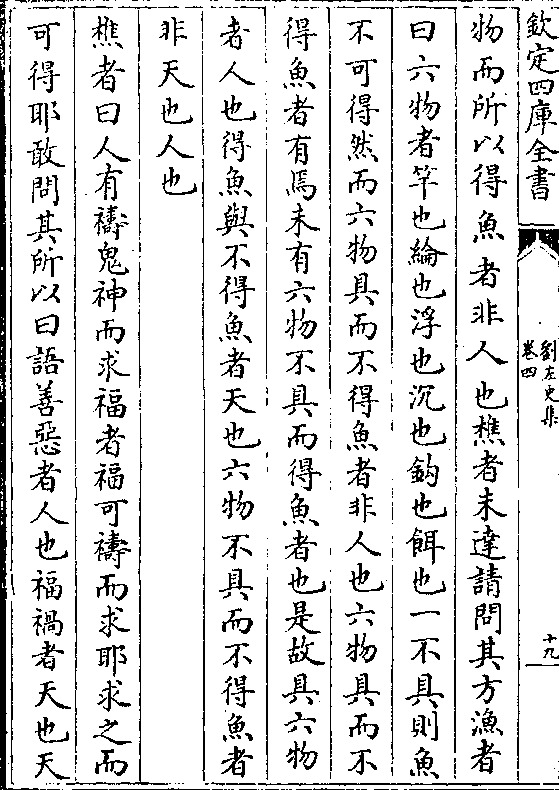 欽定四庫全書
劉左史集
卷四
十九
物而所以得魚者非人也樵者未達請問其方漁者
曰六物者竿也綸也浮也沉也鈎也餌也一不具則魚
不可得然而六物具而不得魚者非人也六物具而不
得魚者有焉未有六物不具而得魚者也是故具六物
者人也得魚與不得魚者天也六物不具而不得魚者
非天也人也
樵者曰人有禱鬼神而求福者福可禱而求耶求之而
可得耶敢問其所以曰語善惡者人也福禍者天也天